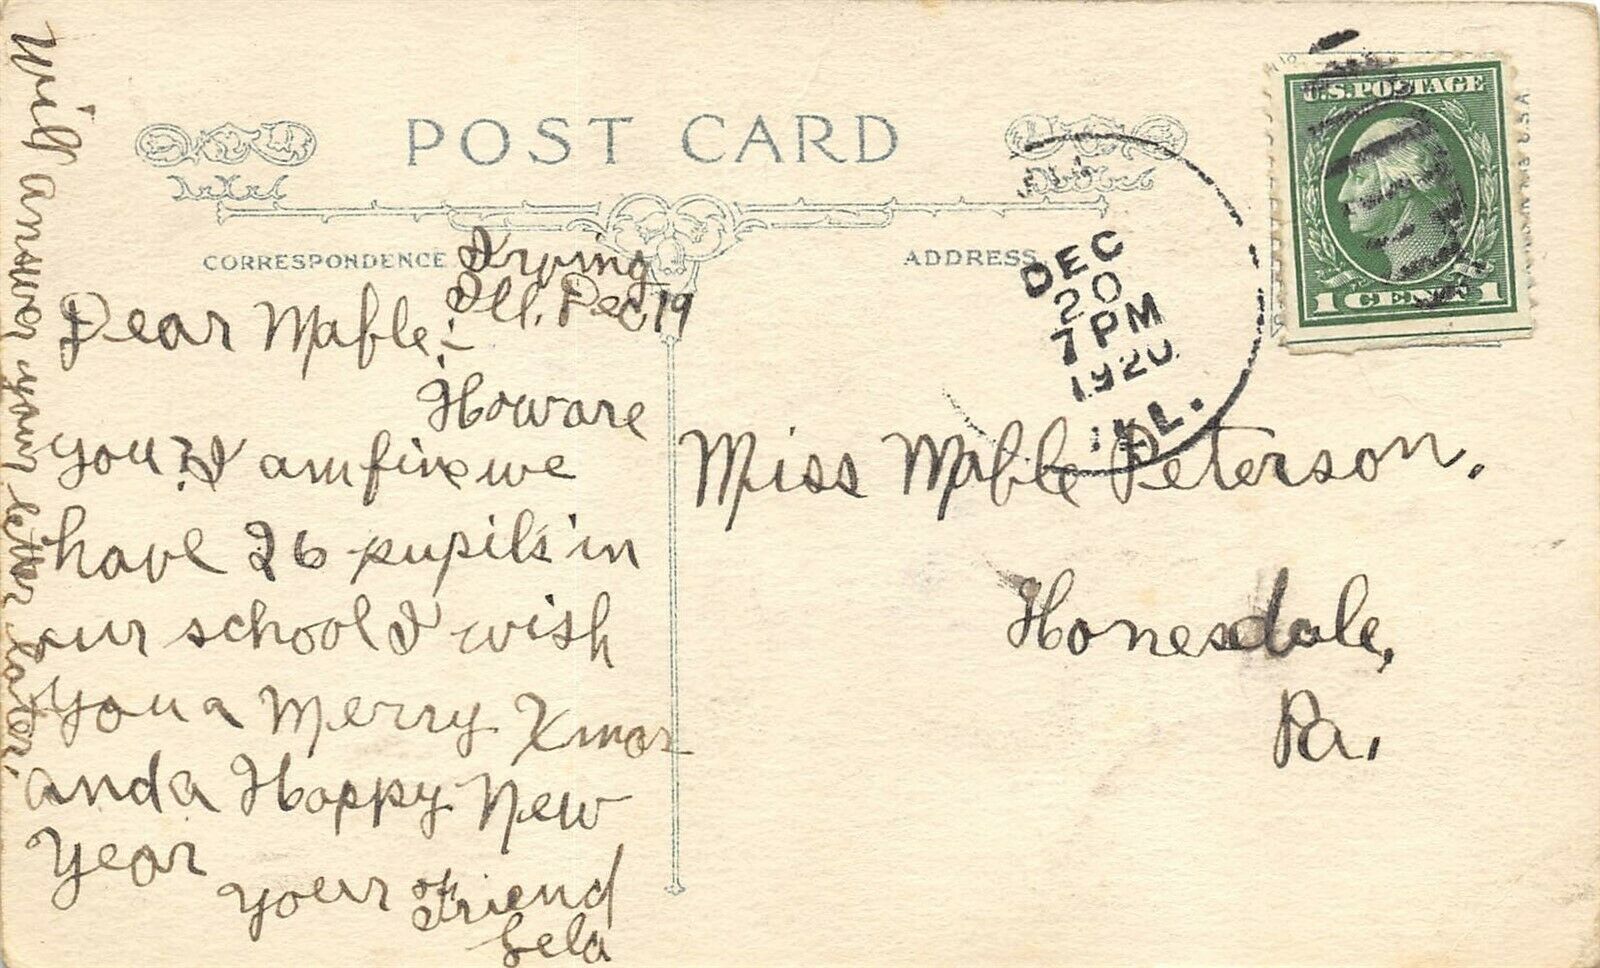 POST CARD
CORRESPONDENCE
ADDRESS
Irving
Ill. Dec 19
Dear Mable:-
How are
you? I am fine we
have 26 pupils in
our school I wish
you a Merry Xmas
and a Happy New
Year
your Friend
Lela
Will answer your letter later.
U.S. POSTAGE
1 CENT 1
DEC
20
7 PM
1920
ILL.
Miss Mable Peterson.
Honesdale,
Pa.